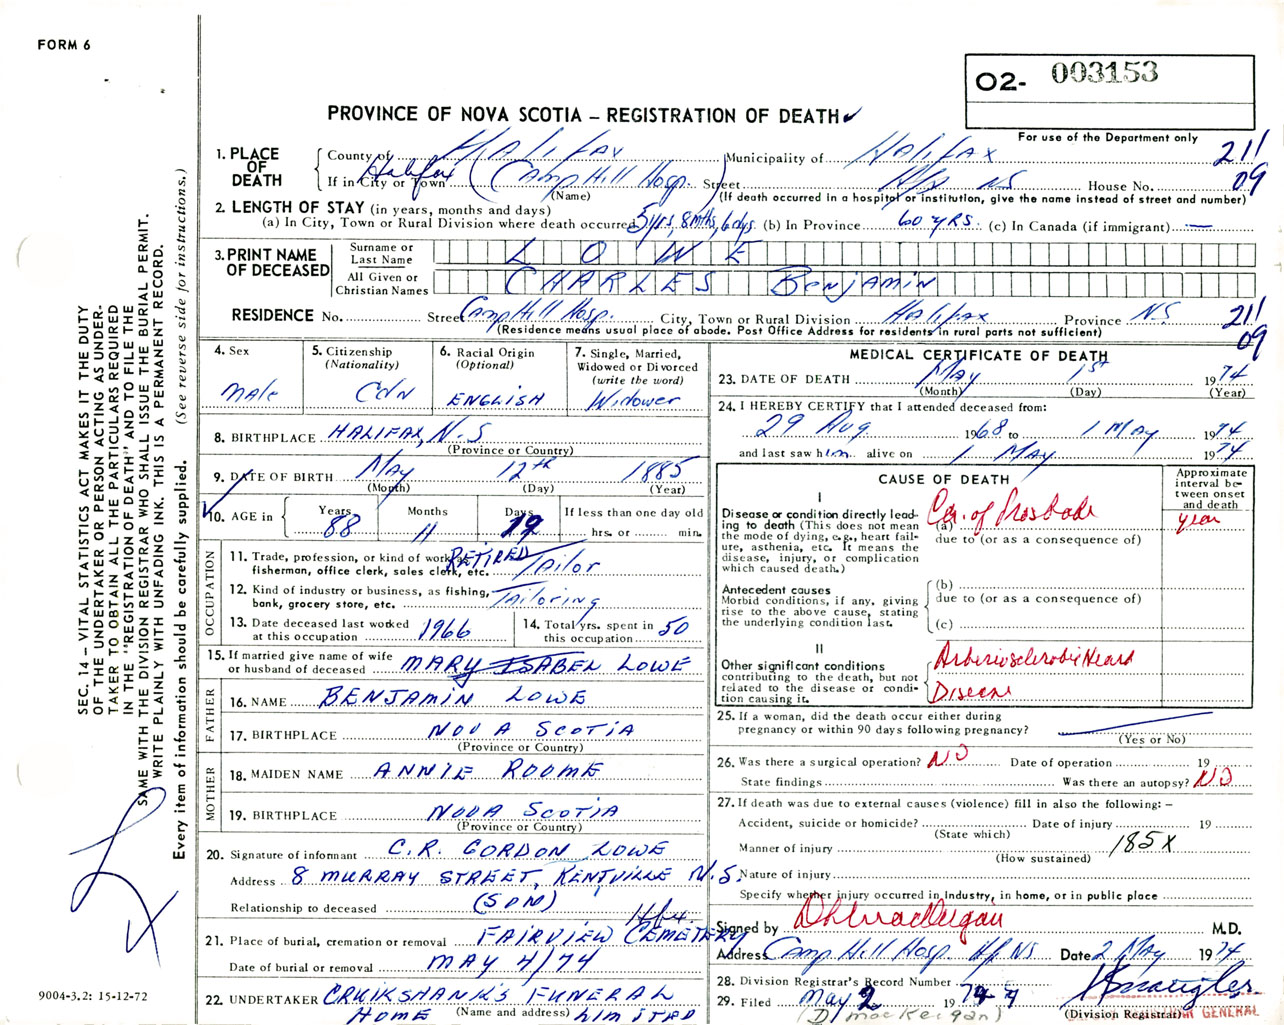 FORM 6
O2- 003153
PROVINCE OF NOVA SCOTIA – REGISTRATION OF DEATH
For use of the Department only
1. PLACE OF DEATH
County of Halifax Municipality of Halifax 211
If in City or Town Halifax (Camp Hill Hosp.) Street Hfx NS House No. 09
(Name) (If death occurred in a hospital or institution, give the name instead of street and number)
2. LENGTH OF STAY (in years, months and days)
(a) In City, Town or Rural Division where death occurred 5 yrs, 8 mths, 6 dys (b) In Province 60 yrs. (c) In Canada (if immigrant) —
3. PRINT NAME OF DECEASED
Surname or Last Name LOWE
All Given or Christian Names CHARLES Benjamin
RESIDENCE No. Street Camp Hill Hosp. City, Town or Rural Division Halifax Province N.S. 211
(Residence means usual place of abode. Post Office Address for residents in rural parts not sufficient) 09
4. Sex
male
5. Citizenship
(Nationality)
Cdn
6. Racial Origin
(Optional)
ENGLISH
7. Single, Married,
Widowed or Divorced
(write the word)
Widower
8. BIRTHPLACE HALIFAX, N.S
(Province or Country)
9. DATE OF BIRTH May 12th 1885
(Month) (Day) (Year)
10. AGE in Years Months Days If less than one day old
88 11 19 hrs. or min.
OCCUPATION
11. Trade, profession, or kind of work as fisherman, office clerk, sales clerk, etc. RETIRED Tailor
12. Kind of industry or business, as fishing, bank, grocery store, etc. Tailoring
13. Date deceased last worked at this occupation 1966
14. Total yrs. spent in this occupation 50
15. If married give name of wife or husband of deceased MARY ISABEN LOWE
FATHER
16. NAME BENJAMIN LOWE
17. BIRTHPLACE NOVA SCOTIA
(Province or Country)
MOTHER
18. MAIDEN NAME ANNIE ROOME
19. BIRTHPLACE NOVA SCOTIA
(Province or Country)
20. Signature of informant C.R. GORDON LOWE
Address 8 MURRAY STREET, KENTVILLE N.S.
Relationship to deceased (SON)
Hfx.
21. Place of burial, cremation or removal FAIRVIEW CEMETERY
Date of burial or removal MAY 4/74
22. UNDERTAKER CRUIKSHANK'S FUNERAL
HOME (Name and address) LIMITED
MEDICAL CERTIFICATE OF DEATH
23. DATE OF DEATH May 1st 1974
(Month) (Day) (Year)
24. I HEREBY CERTIFY that I attended deceased from:
29 Aug 1968 to 1 May 1974
and last saw him alive on 1 May 1974
CAUSE OF DEATH
Approximate interval between onset and death
I
Disease or condition directly leading to death (This does not mean the mode of dying, e.g., heart failure, asthenia, etc. It means the disease, injury, or complication which caused death.)
(a) Ca. of Prostate year
due to (or as a consequence of)
Antecedent causes
Morbid conditions, if any, giving rise to the above cause, stating the underlying condition last.
(b)
due to (or as a consequence of)
(c)
II
Other significant conditions
contributing to the death, but not related to the disease or condition causing it.
Arteriosclerotic Heart
Disease
25. If a woman, did the death occur either during
pregnancy or within 90 days following pregnancy?
(Yes or No)
26. Was there a surgical operation? NO Date of operation 19
State findings Was there an autopsy? NO
27. If death was due to external causes (violence) fill in also the following: –
Accident, suicide or homicide? Date of injury 19
(State which)
Manner of injury 185X
(How sustained)
Nature of injury
Specify whether injury occurred in Industry, in home, or in public place
Signed by M.D.
Address Camp Hill Hosp Hfx NS Date 2 May 1974
28. Division Registrar's Record Number
29. Filed May 2 1974
(Division Registrar)
GENERAL
SEC. 14 – VITAL STATISTICS ACT MAKES IT THE DUTY
OF THE UNDERTAKER OR PERSON ACTING AS UNDER-
TAKER TO OBTAIN ALL THE PARTICULARS REQUIRED
IN THE "REGISTRATION OF DEATH" AND TO FILE THE
SAME WITH THE DIVISION REGISTRAR WHO SHALL ISSUE THE BURIAL PERMIT.
WRITE PLAINLY WITH UNFADING INK. THIS IS A PERMANENT RECORD.
Every item of information should be carefully supplied. (See reverse side for instructions.)
9004-3.2: 15-12-72